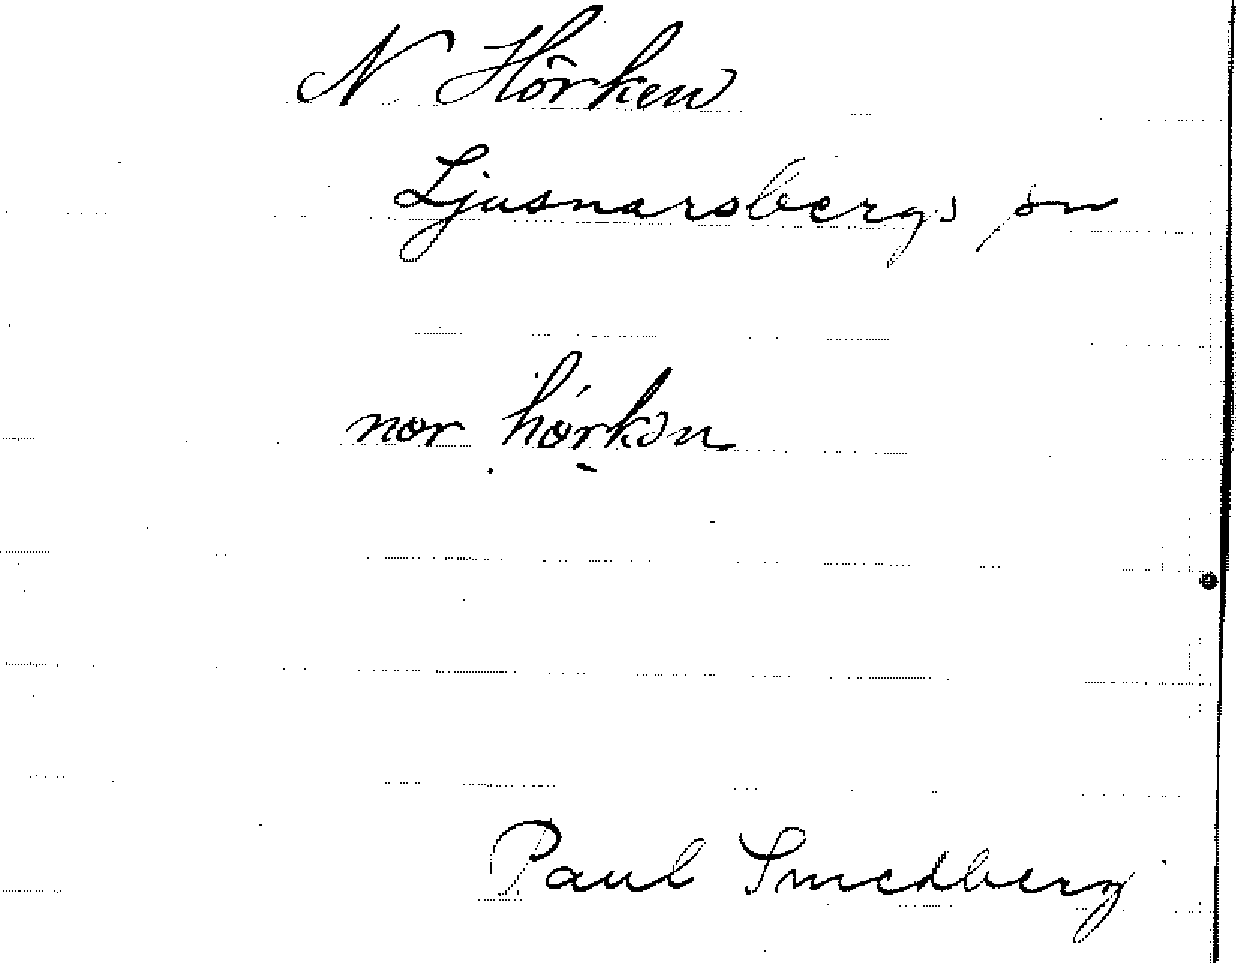 N Hörken
Ljusnarsbergs sn
nor hørkən
Paul Smedberg